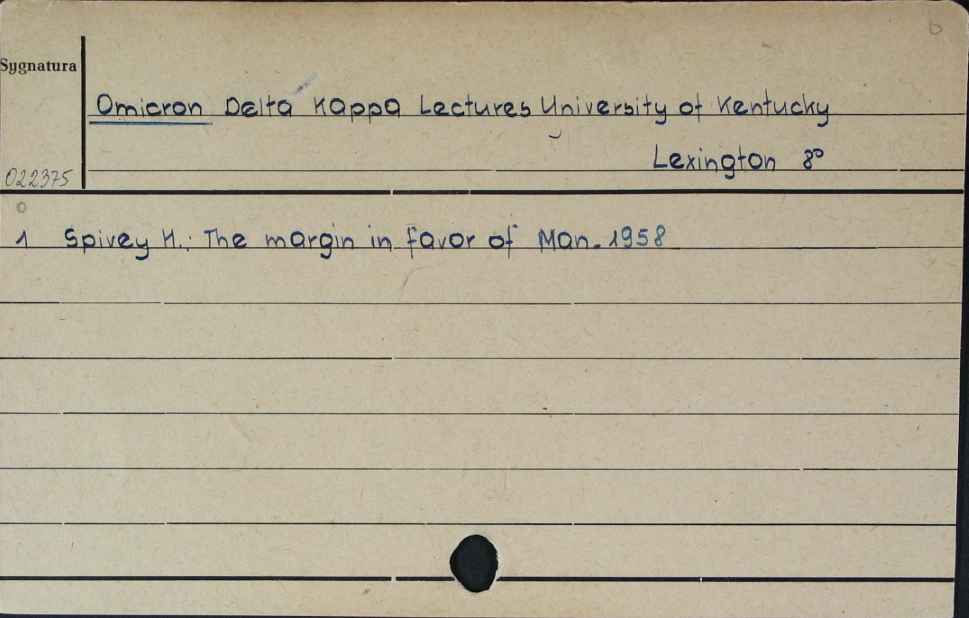 6
Sygnatura
Omicron Delta Kappa Lectures University of Kentucky
Lexington 8°
022375
1 Spivey H.: The margin in favor of Man. 1958